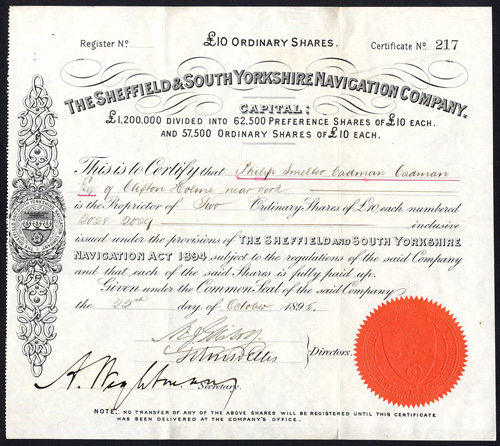 Register No
£10 ORDINARY SHARES.
Certificate No 217
THE SHEFFIELD & SOUTH YORKSHIRE NAVIGATION COMPANY.
CAPITAL:
£1,200,000 DIVIDED INTO 62,500 PREFERENCE SHARES OF £10 EACH.
AND 57,500 ORDINARY SHARES OF £10 EACH.
This is to Certify that Philip Smelter Cadman Cadman
Esq of Clifton Holme near York
is the Proprietor of Two Ordinary Shares of £10 each numbered
2028-2029 inclusive
issued under the provisions of THE SHEFFIELD AND SOUTH YORKSHIRE
NAVIGATION ACT 1894 subject to the regulations of the said Company
and that each of the said Shares is fully paid up.
Given under the Common Seal of the said Company
the 22nd day of October 1895.
Directors.
A. Wightman
Secretary.
NOTE: NO TRANSFER OF ANY OF THE ABOVE SHARES WILL BE REGISTERED UNTIL THIS CERTIFICATE
HAS BEEN DELIVERED AT THE COMPANY'S OFFICE.